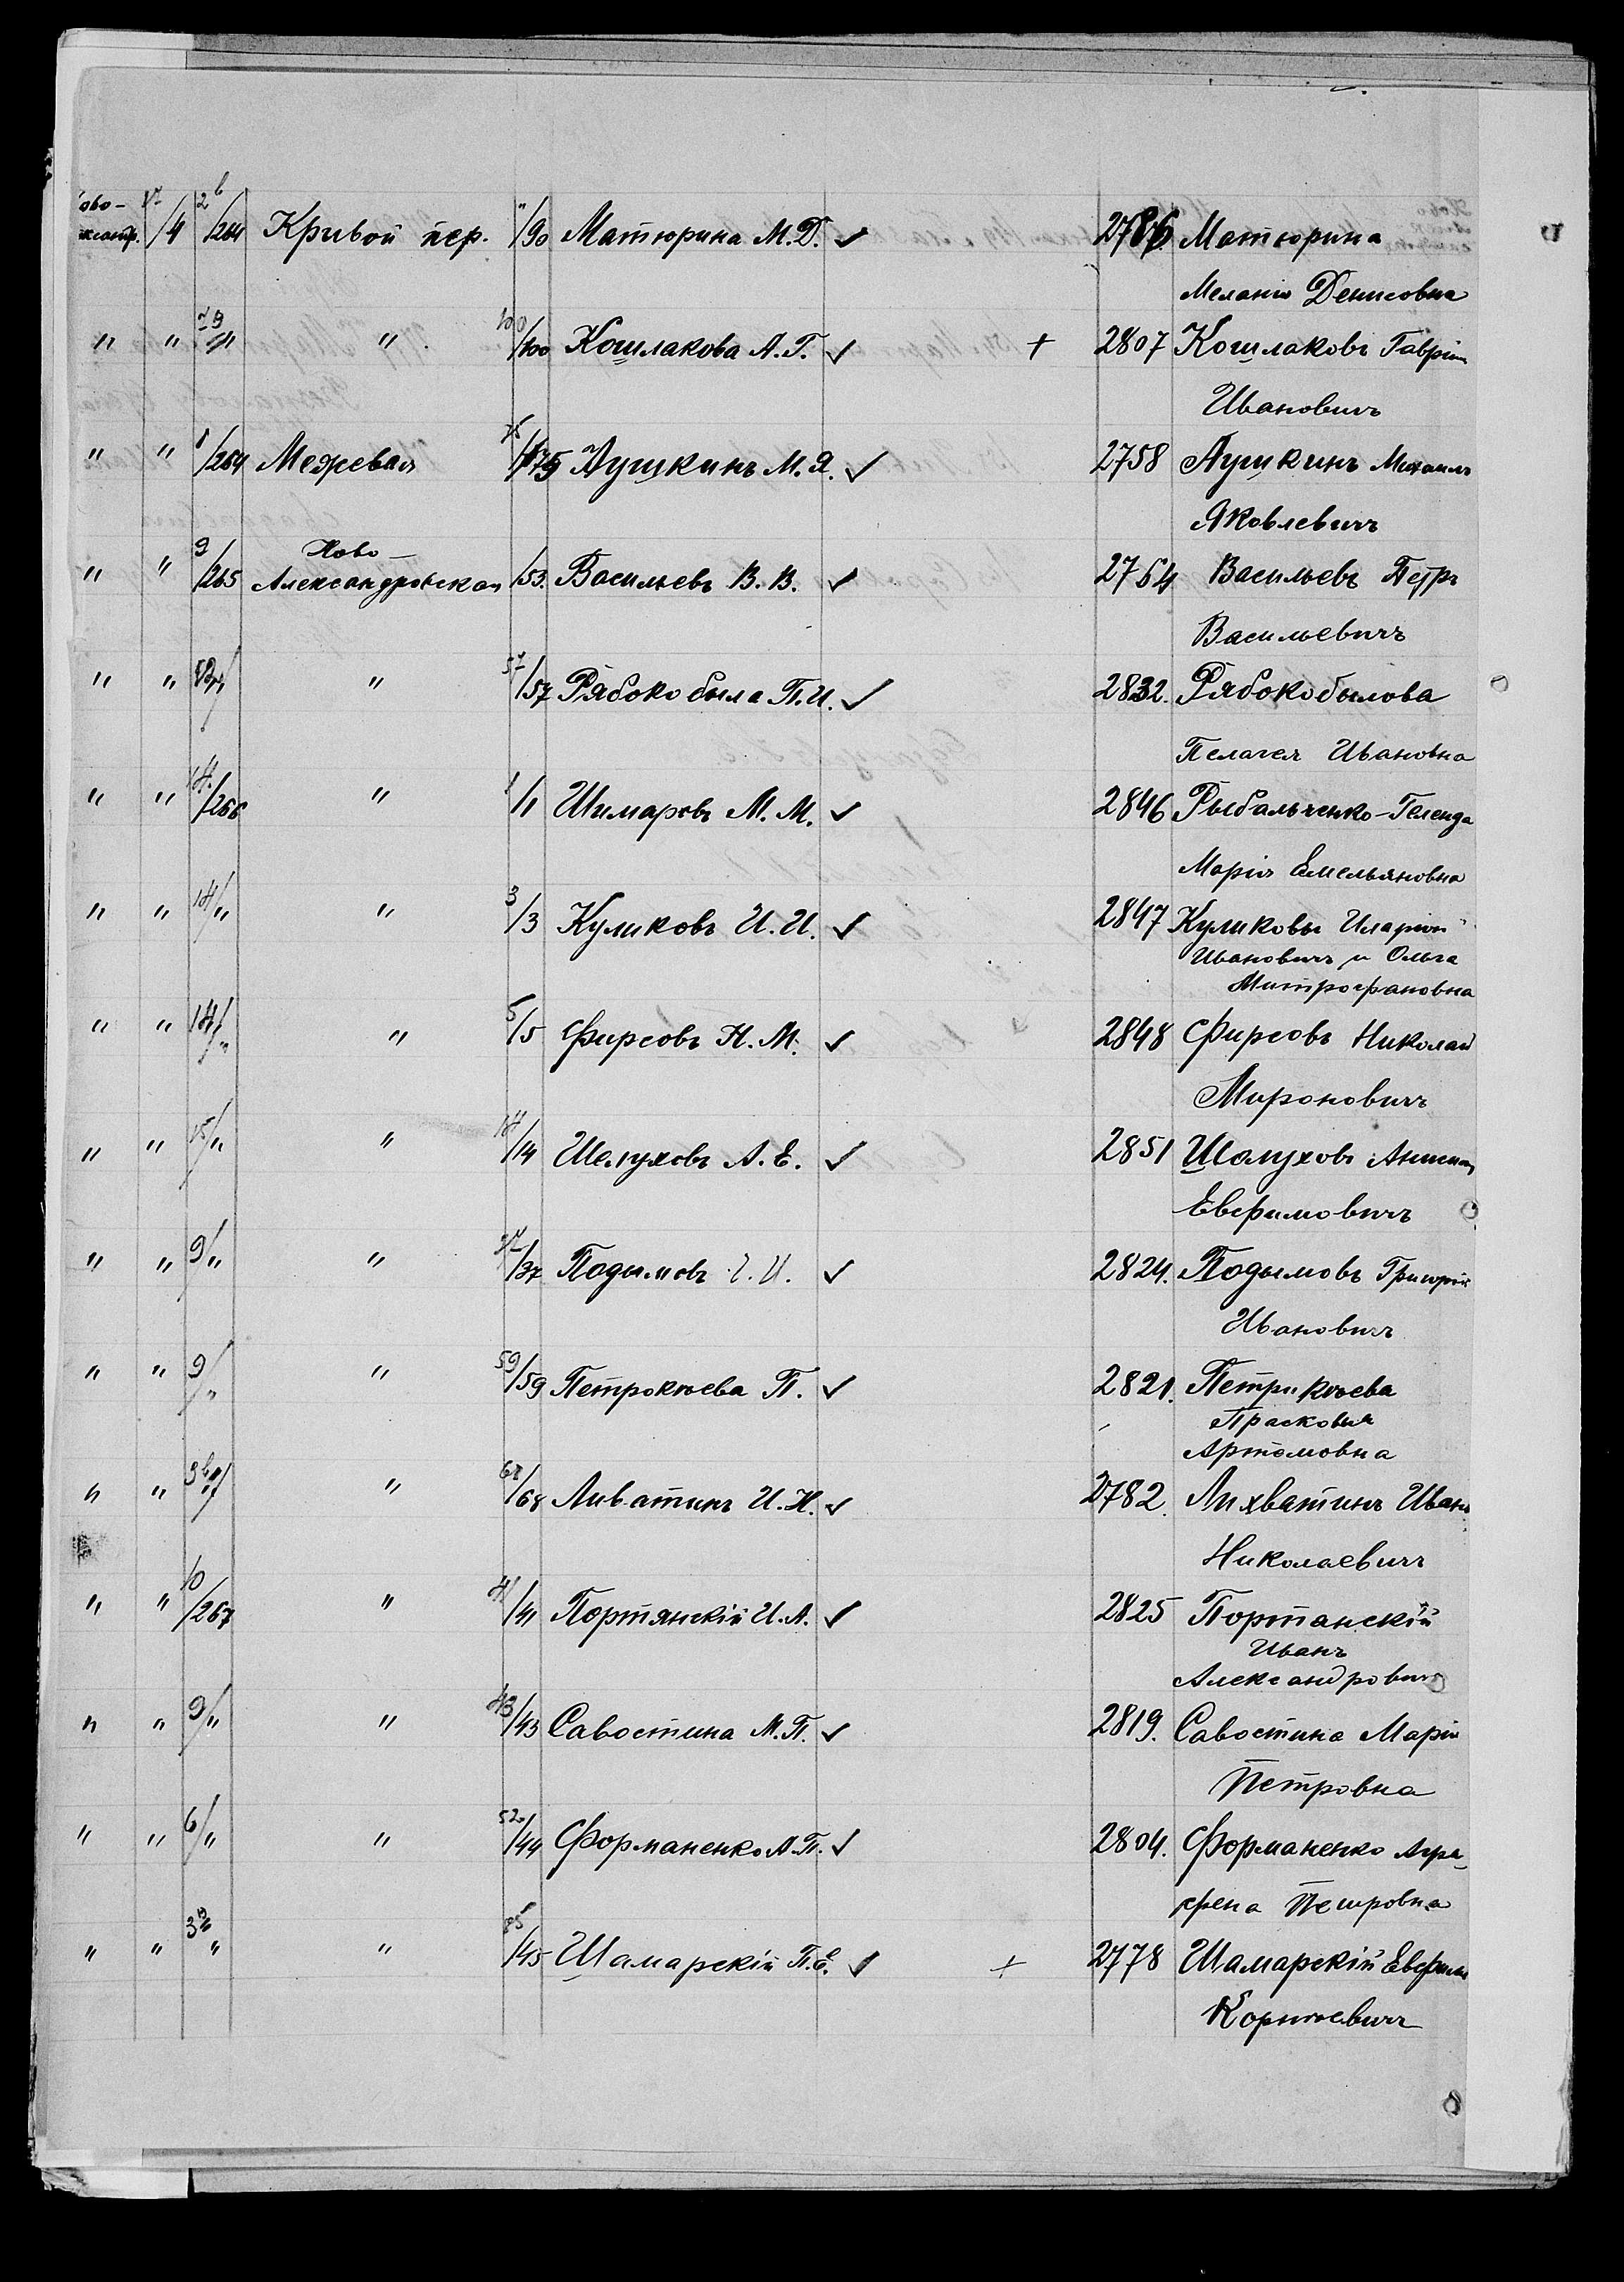 2б
/4 /264 Кривой пер. "/90 Матюрина М. Д. ✓ 2786 Матюрина
Меланія Денисовна
" " " " 100/100 Кошлакова А. Г. ✓ + 2807 Кошлаковъ
Ивановичъ
" " 1/264 Межевая 75/175 Лушкинъ М. Я. ✓ 2758 Лушкинъ Михаилъ
Яковлевичъ
Ново-
" " 9/265 Александровская /53. Васильевъ В. В. ✓ 2764 Васильевъ Петръ
Васильевичъ
" " " 57/57 Рябокобыла П. И. ✓ 2832. Рябокобылова
Пелагея Ивановна
" " 14/266 " 1/1 Шимаровъ М. М. ✓ 2846 Рыбальченко-Геленда
Марія Емельяновна
" " 14/" " 3/3 Куликовъ И. И. ✓ 2847 Куликовы Иларіон
Ивановичъ и Ольга
Митрофановна
" " 14/" " 5/5 Фирсовъ Н. М. ✓ 2848 Фирсовъ Николай
Мироновичъ
" " 15/" " 14/14 Шелуховъ А. Е. ✓ 2851 Шолуховъ
Евфимовичъ
" " 9/" " 37/37 Подымовъ И. ✓ 2824. Подымовъ Григорій
Ивановичъ
" " 9/" " 59/59 Петрокѣева П. ✓ 2821. Петрикѣева
Прасковья
Артомовна
" " " 68/68 Ливатинъ И. Н. ✓ 2782. Лихватинъ Иванъ
Николаевичъ
" " 10/267 " 41/41 Портянскій И. А. ✓ 2825 Портанскій
Иванъ
Александровичъ
" " 9/" " 43/43 Савостина М. П. ✓ 2819. Савостина Марія
Петровна
" " 6/" " 52/44 Форманенко А. П. ✓ 2804. Форманенко Агра-
фена Петровна
" " " " 85/45 Шамарскій П. Е. ✓ + 2778 Шамарскій Евфимъ
Корнѣевичъ